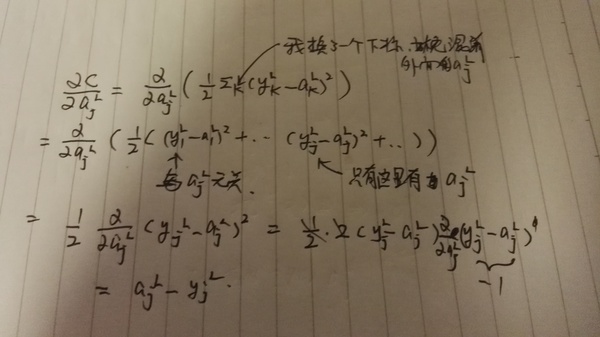 我换了一个下标,避免混淆
外面的 a_j^L
∂C/∂a_j^L = ∂/∂a_j^L ( 1/2 Σ_K (y_K^L - a_K^L)^2 )
= ∂/∂a_j^L ( 1/2 ( (y_1^L - a_1^L)^2 + ·· (y_j^L - a_j^L)^2 + ·· ) )
与 a_j^L 无关. 只有这里有 a_j^L
= 1/2 ∂/∂a_j^L (y_j^L - a_j^L)^2 = 1/2 · 2 (y_j^L - a_j^L) ∂/∂a_j^L (y_j^L - a_j^L)
-1
= a_j^L - y_j^L.